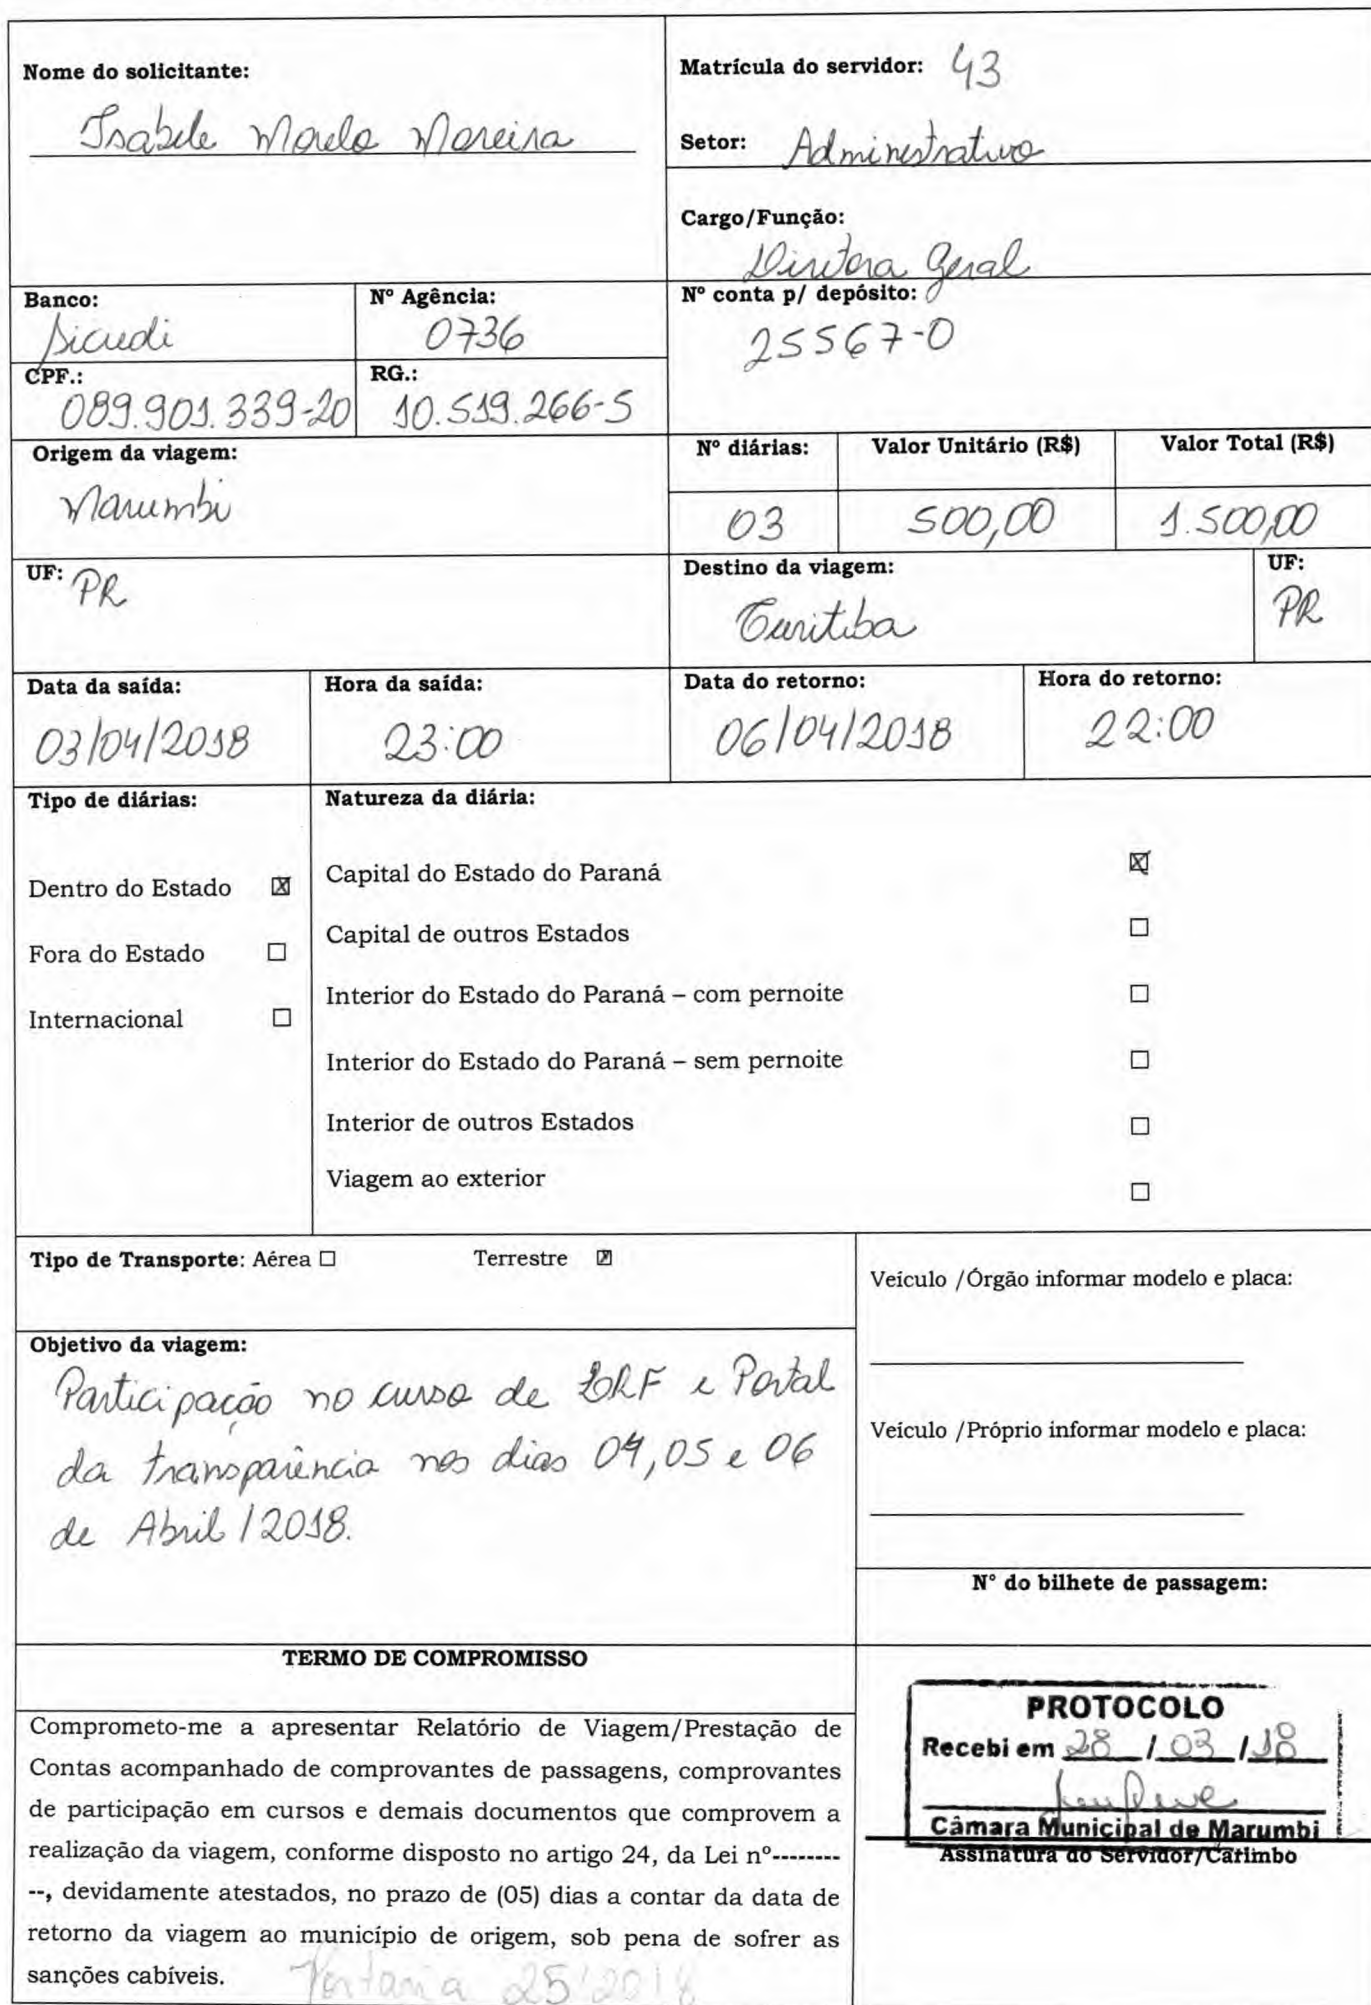 Nome do solicitante:
Isabele Morelo Moreira
Matrícula do servidor: 43
Setor: Administrativo
Cargo/Função:
Diretora Geral
Banco:
Sicredi
Nº Agência:
0736
Nº conta p/ depósito:
25567-0
CPF.:
089.901.339-20
RG.:
10.519.266-5
Origem da viagem:
Marumbi
Nº diárias:
Valor Unitário (R$)
Valor Total (R$)
03
500,00
1.500,00
UF: PR
Destino da viagem:
Curitiba
UF:
PR
Data da saída:
03/04/2018
Hora da saída:
23:00
Data do retorno:
06/04/2018
Hora do retorno:
22:00
Tipo de diárias:
Dentro do Estado ☒
Fora do Estado ☐
Internacional ☐
Natureza da diária:
Capital do Estado do Paraná ☒
Capital de outros Estados ☐
Interior do Estado do Paraná – com pernoite ☐
Interior do Estado do Paraná – sem pernoite ☐
Interior de outros Estados ☐
Viagem ao exterior ☐
Tipo de Transporte: Aérea ☐ Terrestre ☒
Objetivo da viagem:
Participação no curso de LRF e Portal
da transparência nos dias 04, 05 e 06
de Abril / 2018.
Veículo /Órgão informar modelo e placa:
Veículo /Próprio informar modelo e placa:
N° do bilhete de passagem:
TERMO DE COMPROMISSO
Comprometo-me a apresentar Relatório de Viagem/Prestação de
Contas acompanhado de comprovantes de passagens, comprovantes
de participação em cursos e demais documentos que comprovem a
realização da viagem, conforme disposto no artigo 24, da Lei nº--------
--, devidamente atestados, no prazo de (05) dias a contar da data de
retorno da viagem ao município de origem, sob pena de sofrer as
sanções cabíveis. Portaria 25/2018
PROTOCOLO
Recebi em 28 / 03 / 18
Câmara Municipal de Marumbi
Assinatura do Servidor/Carimbo